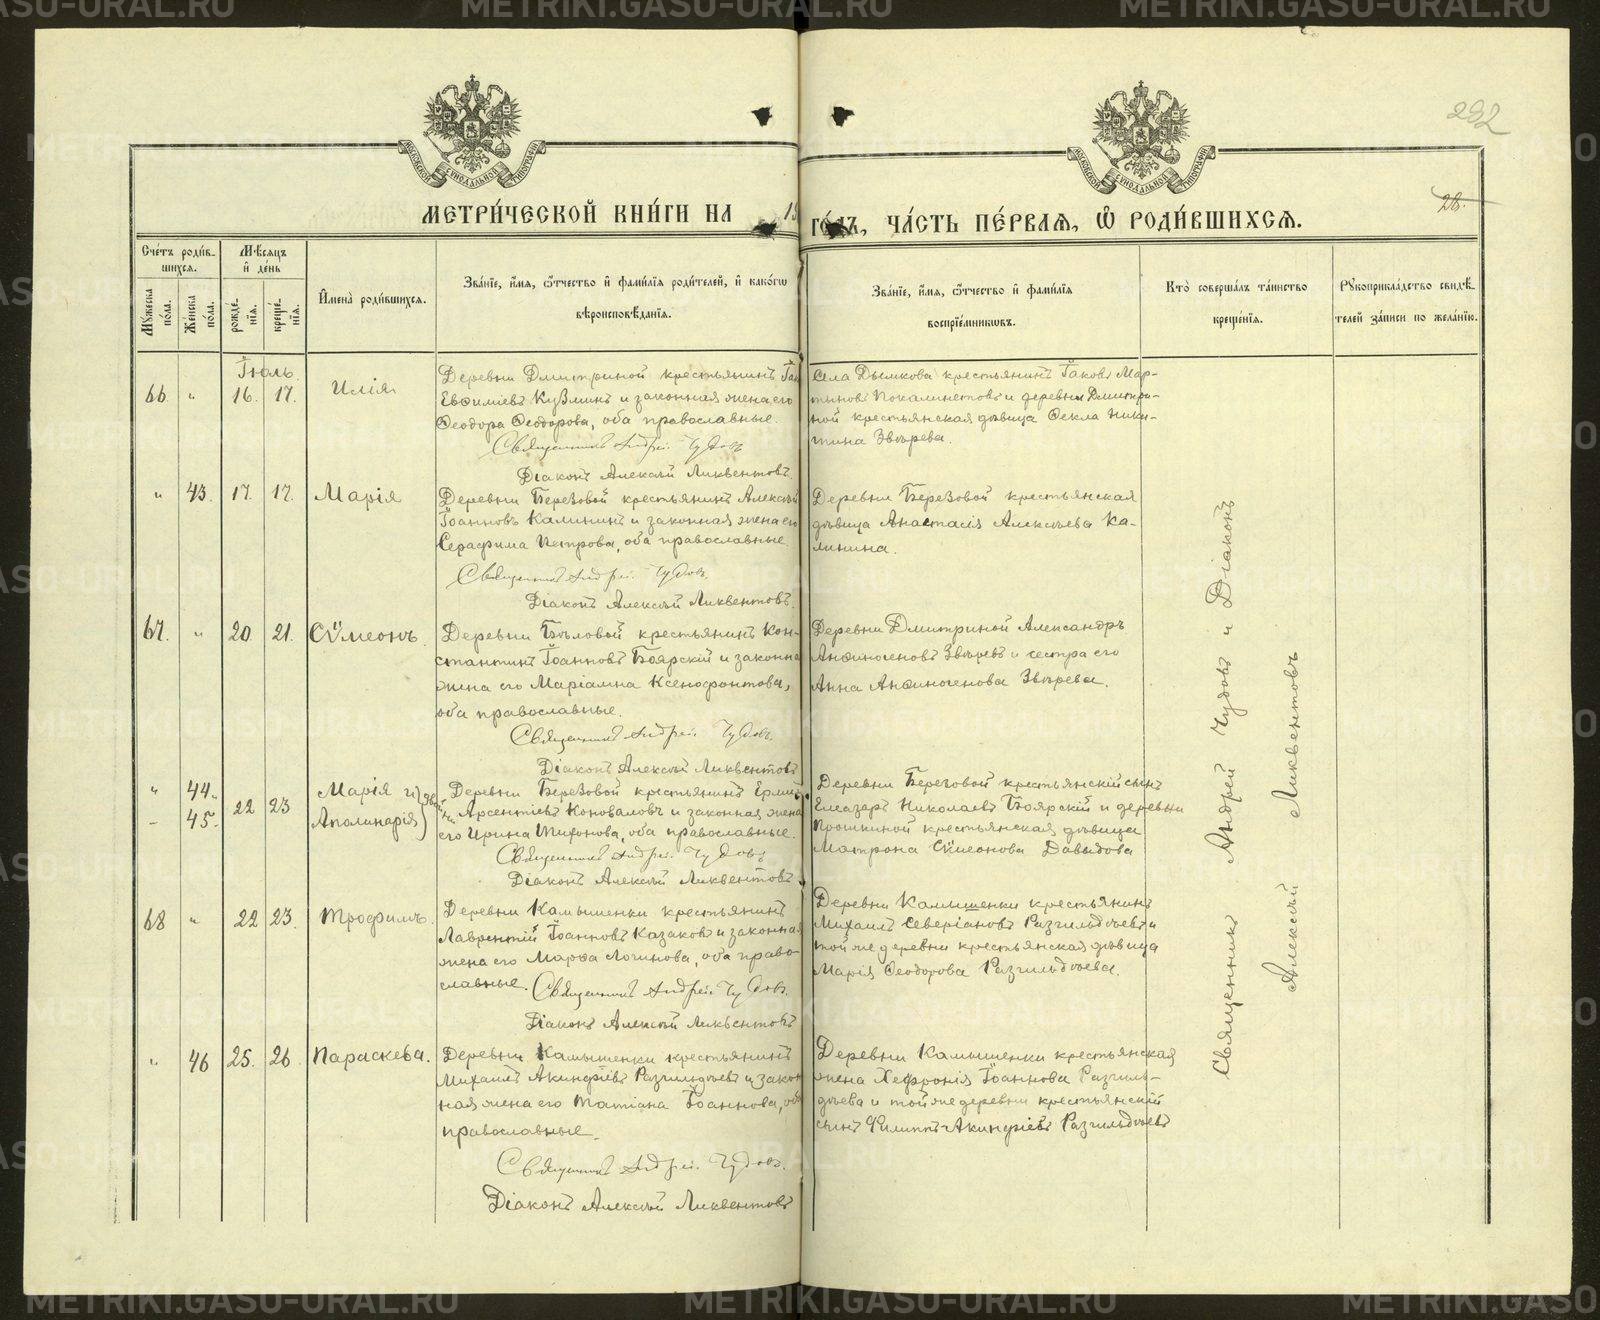 METRIKI.GASU-URAL.RU
292
28.
МЕТРИ́ЧЕСКОЙ КНИ́ГИ НА 19
ГО́ДЪ, ЧА́СТЬ ПЕ́РВАЯ, Ѽ РОДИ́ВШИХСЯ.
Сче́тъ роди́в-
шихся.
Мѣ́сяцъ
и҆ де́нь
Му́жеска
по́ла.
Же́нска
по́ла.
рожде́-
нїя.
креще́-
нїя.
И҆мена̀ роди́вшихся.
Зва́нїе, и҆́мя, ѻ҆́тчество и҆ фами́лїя роди́телей, и҆ како́гѡ
вѣроисповѣ́данїя.
Зва́нїе, и҆́мя, ѻ҆́тчество и҆ фами́лїя
воспрїе́мникѡвъ.
Кто̀ соверша́лъ та́инство
креще́нїя.
Рꙋкоприкла́дство свидѣ́-
телей за́писи по жела́нїю.
Іюль
66. " 16. 17. Илія
Деревни Дмитриной крестьянинъ Іак
Евѳиміевъ Кузминъ и законная жена его
Ѳеодора Ѳеодорова, оба православные.
Священникъ Андрей Чудовъ
Діаконъ Алексѣй Ликвентовъ.
Села Дымкова крестьянинъ Іаковъ Мар-
тыновъ и деревни Дмитри-
ной крестьянская дѣвица Ѳекла Ники-
тина Звѣрева.
" 43. 17. 17. Марія
Деревни Березовой крестьянинъ Алексѣй
Іоанновъ Калининъ и законная жена его
Серафима Петрова, оба православные.
Священникъ Андрей Чудовъ.
Діаконъ Алексѣй Ликвентовъ.
Деревни Березовой крестьянская
дѣвица Анастасія Алексѣева Ка-
линина.
67. " 20 21. Сѵмеонъ.
Деревни Бѣловой крестьянинъ Кон-
стантинъ Іоанновъ Боярскій и законна
жена его Маріамна Ксенофонтова,
оба православные.
Священникъ Андрей Чудовъ.
Діаконъ Алексѣй Ликвентовъ
Деревни Дмитриной Александръ
Анѳиногеновъ Звѣревъ и сестра его
Анна Анѳиногенова Звѣрева.
" 44. 22 23 Марія и
- 45. Аполинарія
Деревни Березовой крестьянинъ Ермил
Арсентіевъ Коноваловъ и законная жена
его Ирина Тихонова, оба православные.
Священникъ Андрей Чудовъ
Діаконъ Алексѣй Ликвентовъ
Деревни Березовой крестьянскій сынъ
Елеазаръ Николаевъ Боярскій и деревни
Прошкиной крестьянская дѣвица
Матрона Сѵмеонова Давыдова
68 " 22 23. Трофимъ.
Деревни Камышенки крестьянинъ
Лаврентій Іоанновъ Казаковъ и законная
жена его Марѳа Логинова, оба право-
славные. Священникъ Андрей Чудовъ.
Діаконъ Алексѣй Ликвентовъ
Деревни Камышенки крестьянинъ
Михаилъ Северіановъ Разгильдѣевъ и
той же деревни крестьянская дѣвица
Марія Ѳеодорова Разгильдѣева.
" 46 25. 26 Параскева.
Деревни Камышенки крестьянинъ
Михаилъ Акинфіевъ Разгильдѣевъ и закон
ная жена его Татіана Іоаннова, оба
православные.
Священникъ Андрей Чудовъ.
Діаконъ Алексѣй Ликвентовъ
Деревни Камышенки крестьянская
жена Хефронія Іоаннова Разгиль-
дѣева и той же деревни крестьянскій
сынъ Филиппъ Акинфіевъ Разгильдѣевъ
Священникъ Андрей Чудовъ и Діаконъ
Алексѣй Ликвентовъ